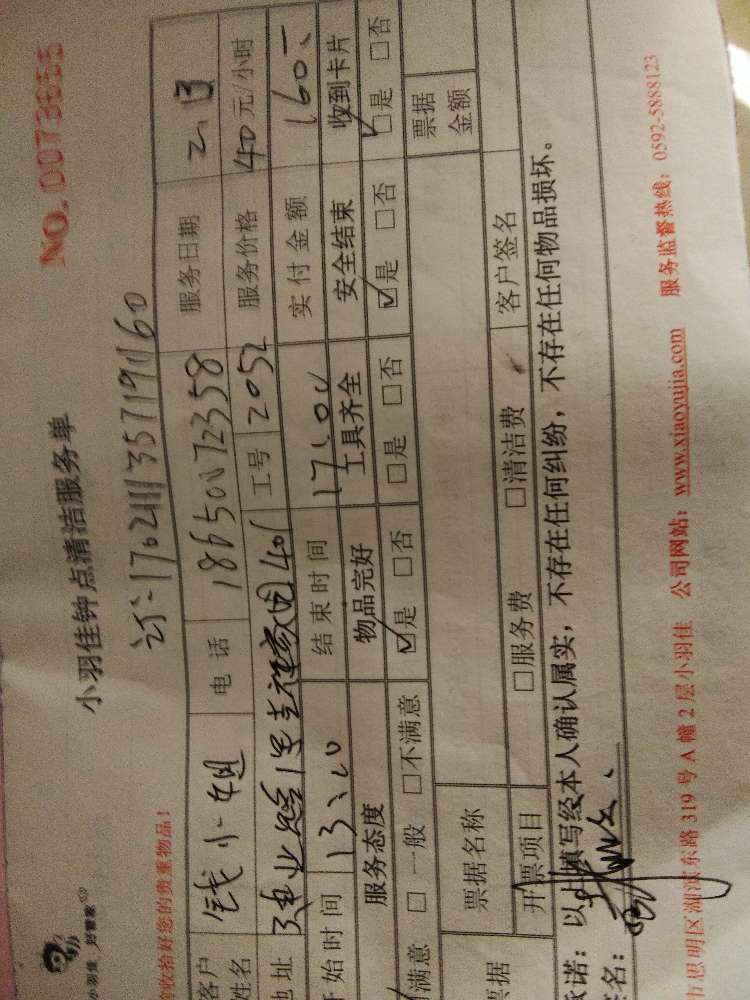 小羽佳 好管家
小羽佳钟点清洁服务单
NO. 0073665
订:170211135719160
收拾好您的贵重物品!
客户姓名 钱小姐 电话 18650072358 服务日期 2.13
地址 建业路1号吉祥家园401 工号 2052 服务价格 40元/小时
开始时间 13:00 结束时间 17:00 实付金额 160-
服务态度 物品完好 工具齐全 安全结束 收到卡片
满意 □一般 □不满意 ☑是 □否 □是 □否 ☑是 □否 ☑是 □否
票据 票据名称 票据金额
开票项目 □服务费 □清洁费 客户签名
承诺:以上填写经本人确认属实,不存在任何纠纷,不存在任何物品损坏。
签名:
市思明区湖滨东路 319 号 A 幢 2 层小羽佳 公司网站:www.xiaoyujia.com 服务监督热线:0592-5888123